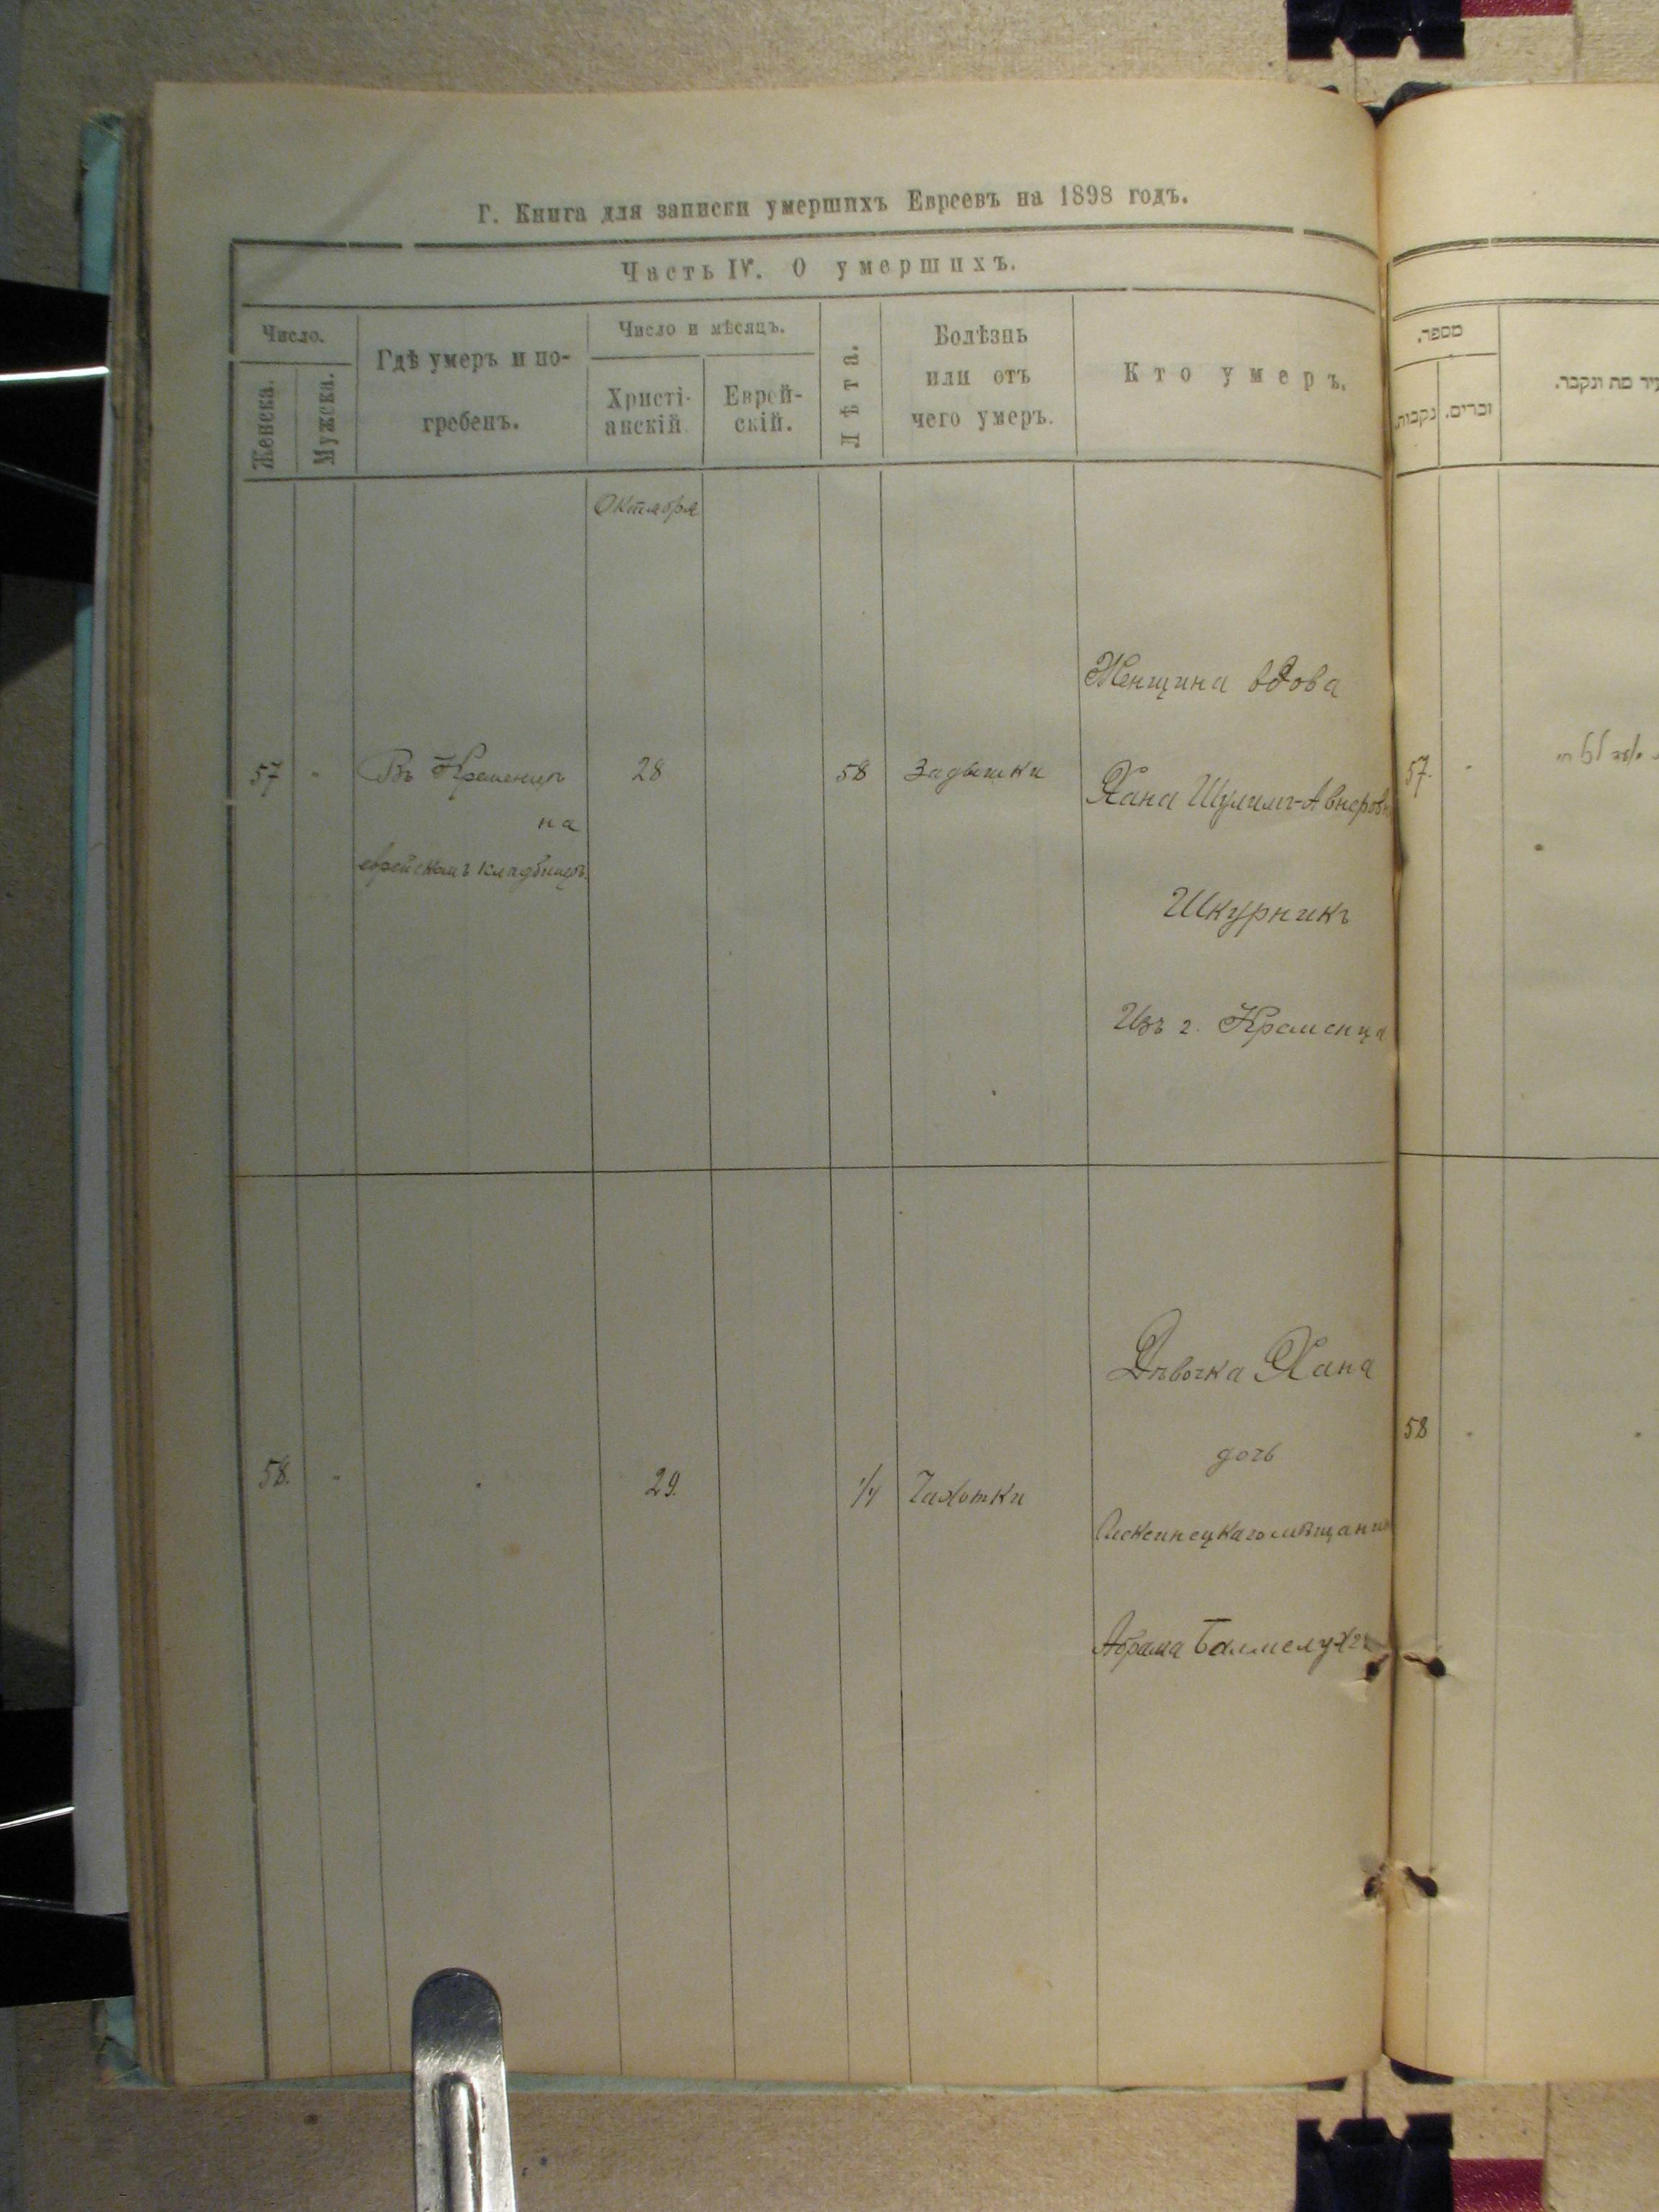 Г. Книга для записки умершихъ Евреевъ на 1898 годъ.
Часть IV. О умершихъ.
Число.
Женска.
Мужска.
Гдѣ умеръ и по-
гребенъ.
Число и мѣсяцъ.
Христі-
анскій
Еврей-
скій.
Лѣта.
Болѣзнь
или отъ
чего умеръ.
Кто умеръ.
Октября
57
Въ Кременцѣ
на
еврейскомъ кладбищѣ.
28
58
Задышки
Женщина вдова
Хана Шулимъ-Авнеров
Шкурникъ
Изъ г. Кременца
58.
29.
1/4
Чахотки
Дѣвочка Хана
дочь
мѣщанин
Абрама
מספר.
נקבות.
זכרים.
עיר מת ונקבר.
57.
58